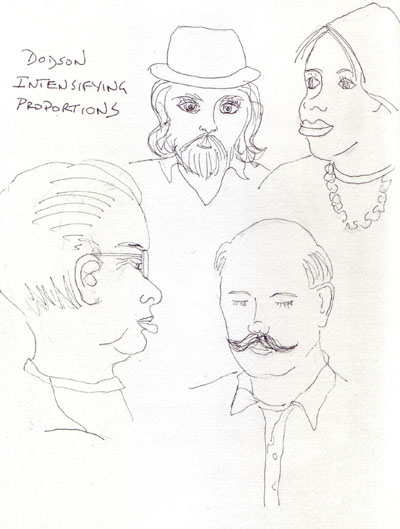 DODSON
INTENSIFYING
PROPORTIONS